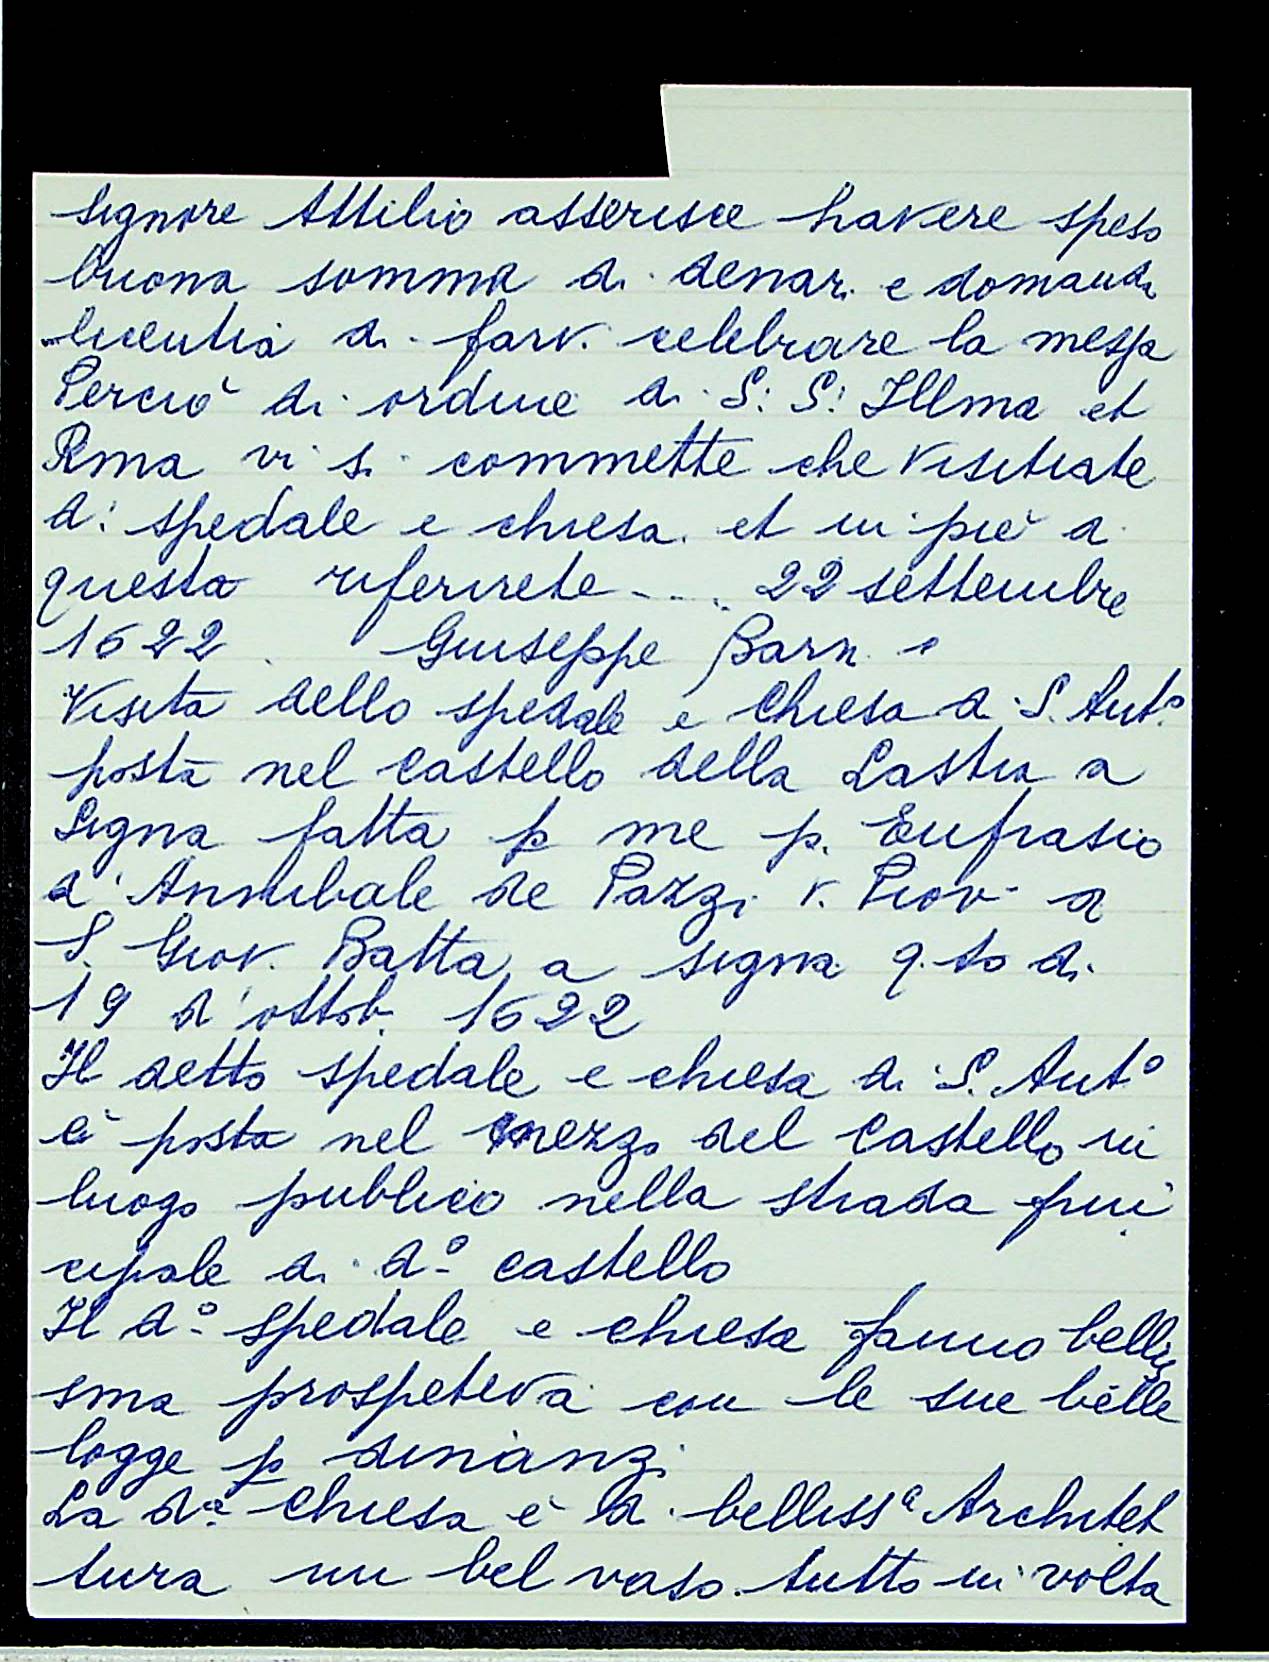 Signore Attilio asserisce havere speso
buona somma di denari e domanda
licentia di farvi celebrare la messa
Perciò di ordine di S: S: Illma et
Rma vi si commette che visitiate
d: spedale e chiesa et in piè di
questa riferirete .... 22 settembre
1622. Giuseppe Barn.
Visita dello spedale e Chiesa di S. Ant.º
posta nel Castello della Lastra a
Signa fatta p me p. Eufrasio
d'Annibale de Pazzi v. Piov di
S. Giov. Batta a Signa q.to di
19 d'ottob. 1622
Il detto spedale e chiesa di S. Ant.º
è posta nel mezzo del Castello in
luogo publico nella strada prin
cipale di d.º castello
Il d.º spedale e chiesa fanno bellis
sma prospetiva con le sue belle
logge p dinanzi
La d.ª Chiesa è di bellissª Architet
tura un bel vaso tutto in volta